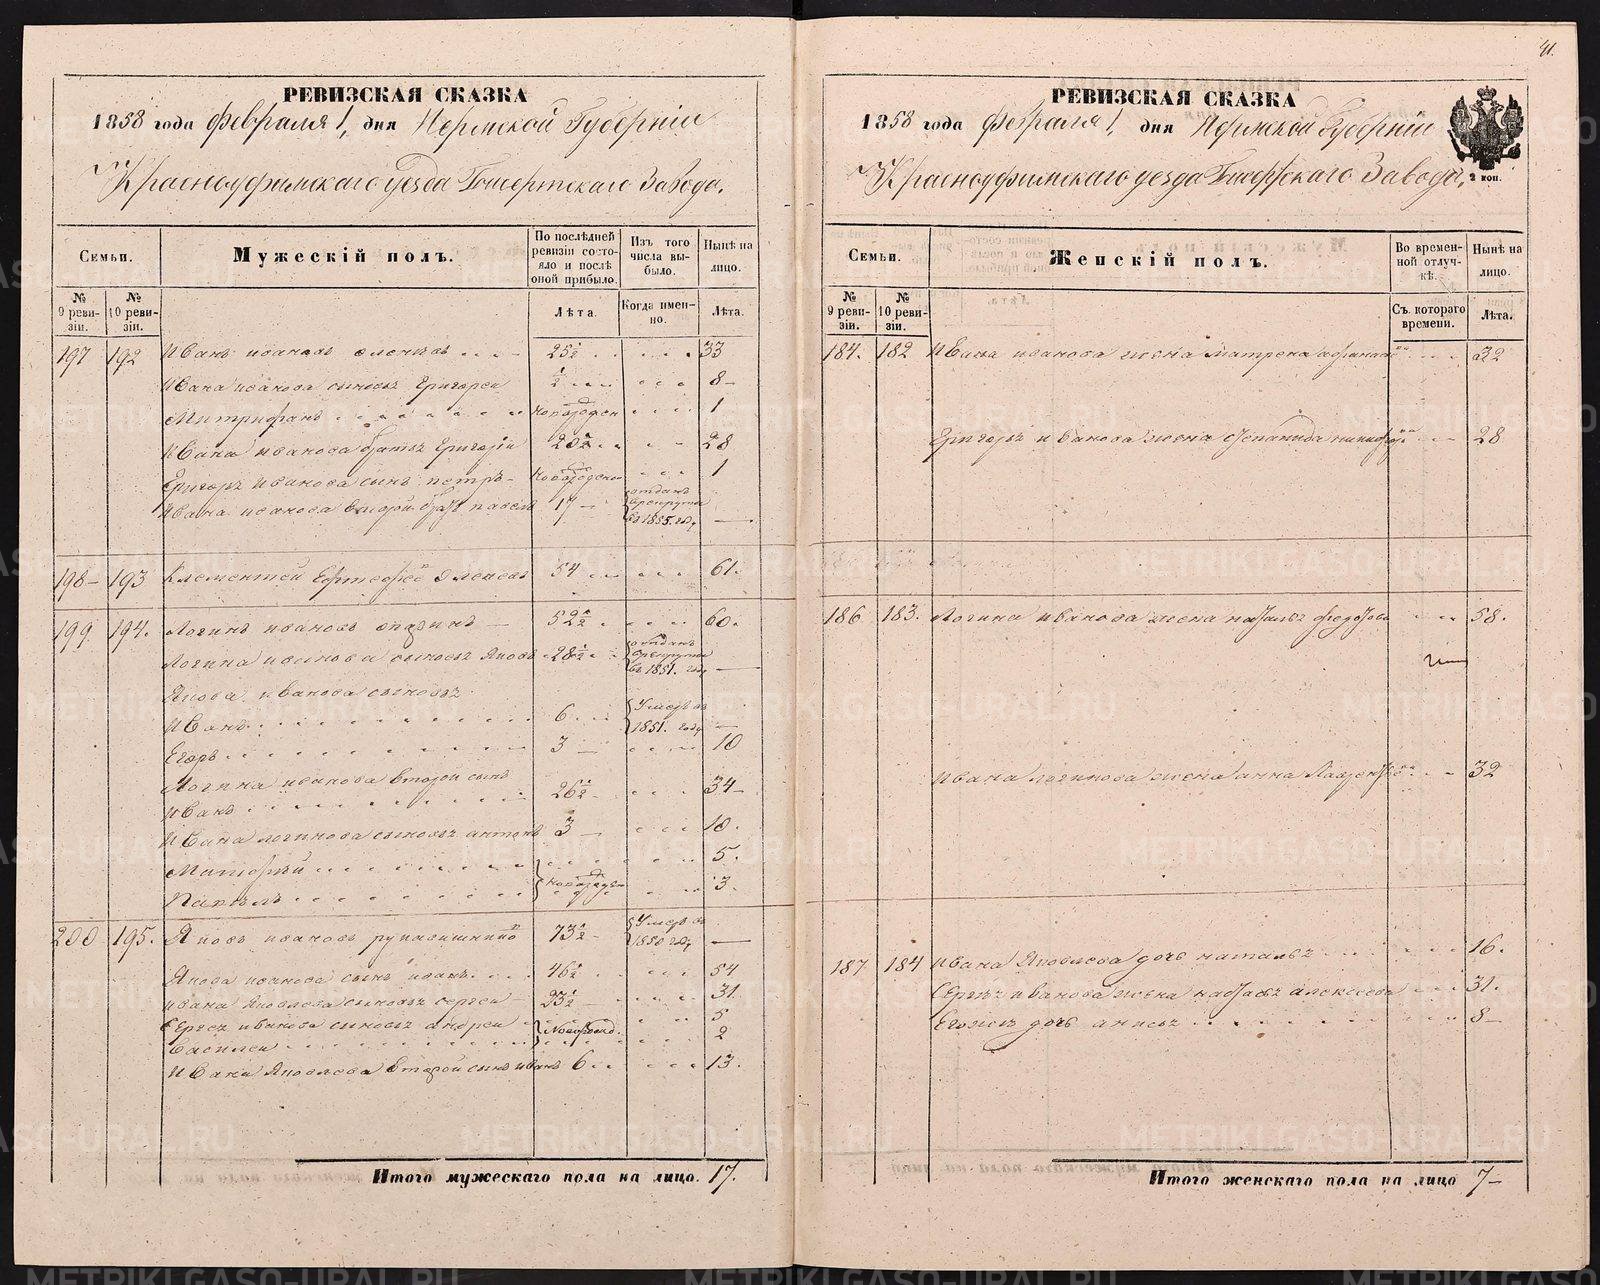 РЕВИЗСКАЯ СКАЗКА
1858 года февраля 1, дня Пермской Губернiи
Красноуфимскаго уезда Бисертскаго Завода.
Семьи.
Мужескiй полъ.
По послѣдней ревизiи состояло и послѣ оной прибыло.
Изъ того числа выбыло.
Нынѣ на лицо.
№ 9 ревизiи.
№ 10 ревизiи.
Лѣта.
Когда именно.
Лѣта.
197 192 Иванъ ивановъ 25½ 33
Ивана иванова сыновья Григореи ½ 8
Митрифанъ новорожден 1
Ивана иванова братъ Григорiи 20½ 28
Григорья иванова сынъ петръ новорожден 1
Ивана иванова второй братъ павелъ 17 отданъ врекруты в 1855. году
198 193 Клементей 54 61.
199 194. Логинъ ивановъ 52½ 60.
Логина иванова сыновья Яковъ 28½ отданъ врекруты въ 1851. году
Якова иванова сыновья
Иванъ 6 Умеръ въ 1851. году
Егоръ 3 10
Логина иванова второй сынъ
Иванъ 26½ 34
Ивана логинова сыновья антонъ 3 10.
Матофѣй 5.
Павелъ новорожден 3.
200 195. Яковъ ивановъ 73½ Умеръ в 1850 году
Якова иванова сынъ иванъ 46½ 54
Ивана Яковлева сыновья сергеи 23½ 31.
Сергея иванова сыновья андреи 5
Василеи новорожд. 2
Ивана Яковлева второй сынъ иванъ 6 13.
Итого мужескаго пола на лицо. 17.
41.
РЕВИЗСКАЯ СКАЗКА
1858 года февраля 1, дня Пермской Губернiи
Красноуфимскаго уезда Бисертскаго Завода.
2 коп.
Семьи.
Женскiй полъ.
Во временной отлучкѣ.
Нынѣ на лицо.
№ 9 ревизiи.
№ 10 ревизiи.
Съ котораго времени.
Лѣта.
184. 182 Ивана иванова жена матрена 32
Григорья иванова жена степанида 28
186 183. Логина иванова жена наталья федотова 58.
Ивана логинова жена анна 32
187 184 Ивана Яковлева дочь наталья 16.
Сергея иванова жена наталья алексеева 31.
Егожъ дочь анисья 8
Итого женскаго пола на лицо 7
METRIKI.GASO-URAL.RU